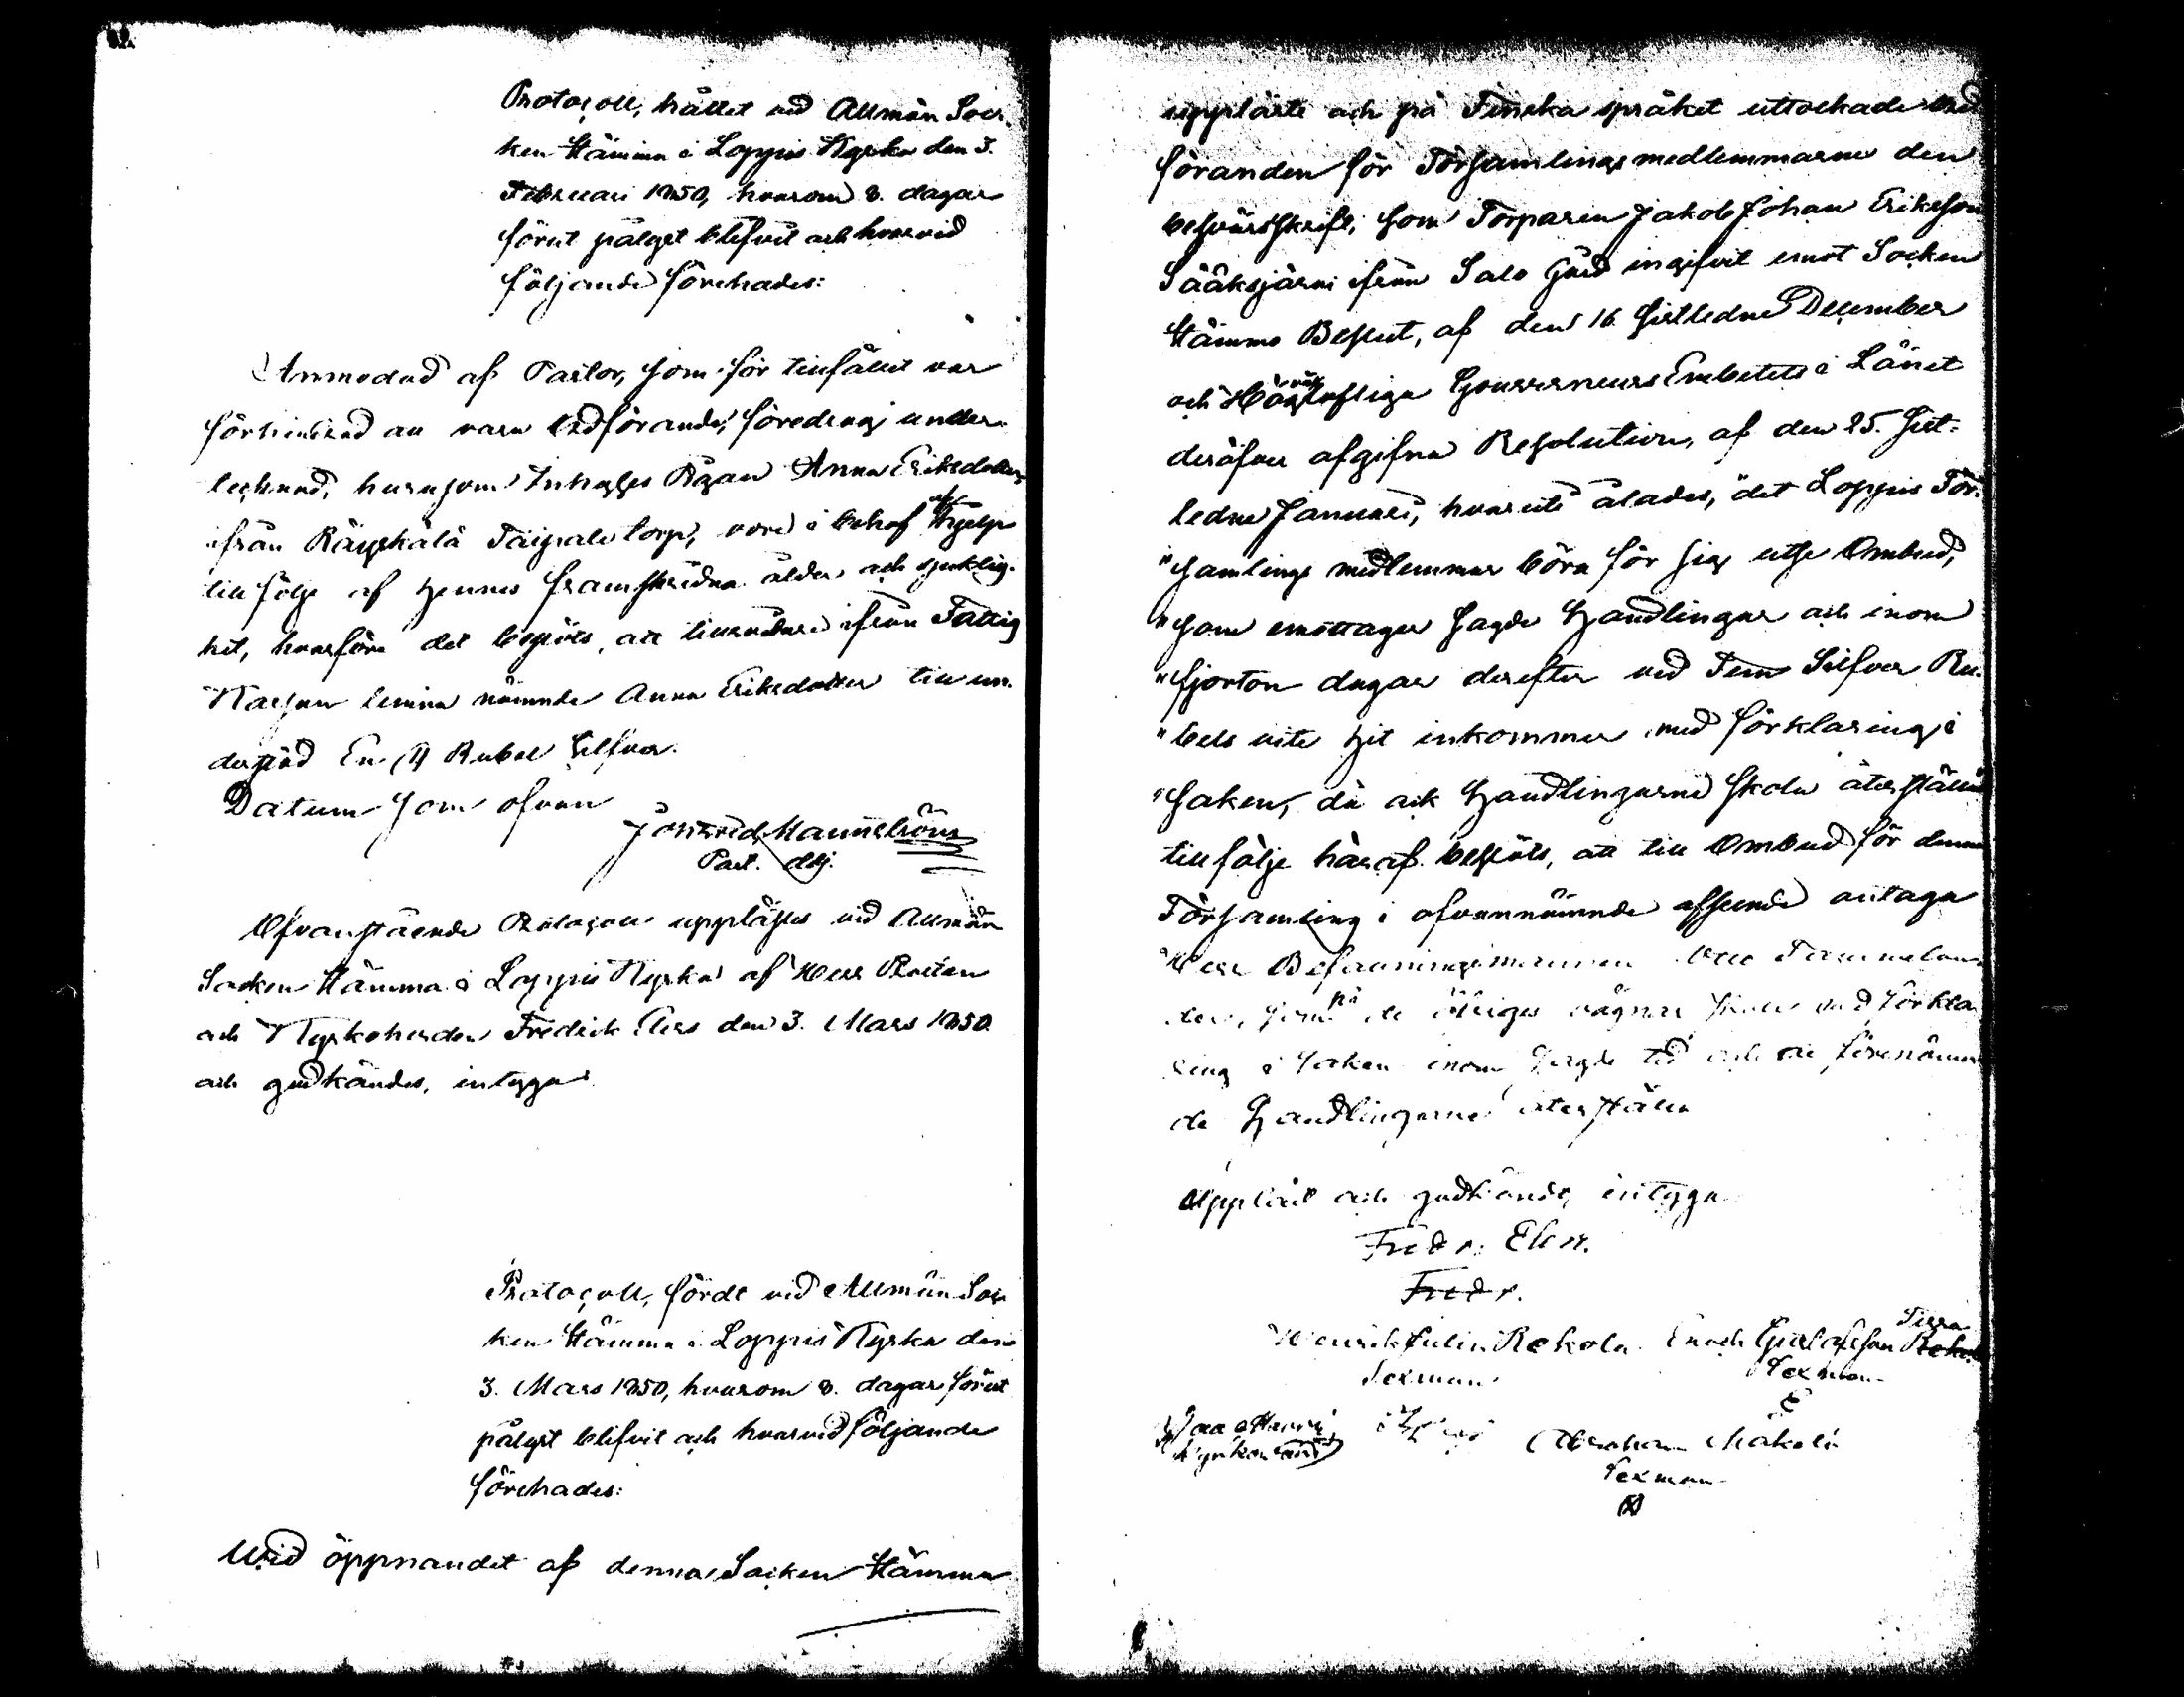 Protocoll, hållet vid Allmän Soc-
ken Stämma i Loppis Kyrka den 3.
Februari 1850, hvarom 8. dagar
förut pålyst blifvit och hvarvid
följande förehades:
Anmodad af Pastor, som för tillfället var
förhindrad att vara Ordförande, föredrog under-
tecknad, hurusom Inhyses Pigan Anna Eriksdotter,
ifrån Räyskälä Taipale torp, vore i behof af Hjelp
till följe af hennes framskridna ålder och sjuklig-
het, hvarföre det beslöts, att tillsvidare ifrån Fattig
Kassan lemna nämnde Anna Eriksdotter till un-
derstöd En (1) Rubel Silfver.
Datum som ofvan
Mannström
Past. adj.
Ofvanstående Protocoll upplästes vid Allmän
Socken Stämma i Loppis Kyrka af Herr Prosten
och Kyrkoherden Fredrik Elers den 3. Mars 1850
och godkändes, intyga
Protocoll, fördt vid Allmän Soc-
ken Stämma i Loppis Kyrka den
3. Mars 1850, hvarom 8. dagar förut
pålyst blifvit och hvarvid följande
förehades:
Wid öppnandet af denna Socken Stämma
upplärte och på Finska språket uttolkade Ord-
föranden för Församlings medlemmarne den
besvärsskrift, som Torparen Jakob Johan Eriksson
Sääksjärvi ifrån Salo Gård ingifvit emot Socken
Stämmo Beslut, af den 16 sistledne December
och Höglofliga Gouverneurs Embetets i Länet
deröfver afgifna Resolution, af den 25. sist-
ledne Januari, hvaruti ålades, "det Loppis För-
"samlings medlemmar böra för sig utse Ombud,
"som emottager sagde Handlingar och inom
"fjorton dagar derefter vid Fem Silfver Ru-
"bels vite hit inkommer med förklaring i
"saken, då ock Handlingarne skola återställas"
till följe häraf beslöts, att till Ombud för denna
Församling i ofvannämnde afseende antaga
Herr Befallningsmannen Otto Tammelan-
der, som på de öfriges vägnar med förkla-
ring i saken inom sagde tid och de förenämn-
de Handlingarne återställa
Uppläst och godkändt, intyga
Fredr. Elers.
Fredr.
Henrik Julin Rekola Enoch Gustafsson Rekola
Sexman Sexman
E
Abraham Mäkelä
Sexman